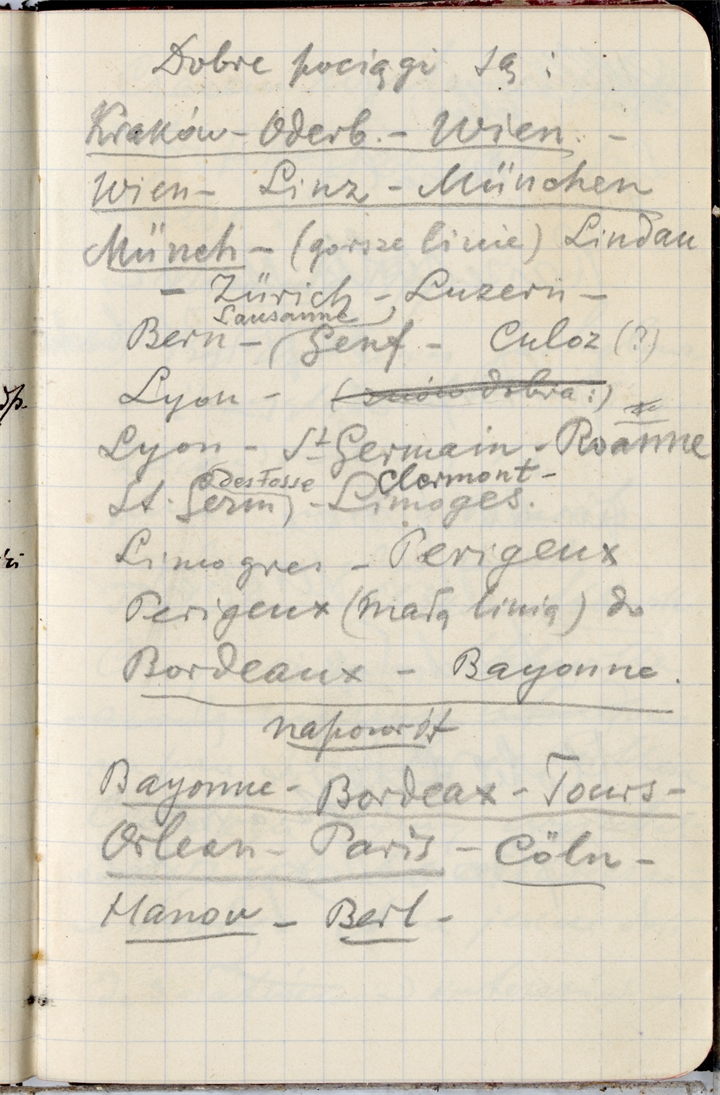 Dobre pociągi są :
Kraków - Oderb. - Wien. -
Wien - Linz - München
Münch - (gorsze linie) Lindau
- Zürich - Luzern -
Lausanne
Bern - (Genf - Culoz (?)
Lyon - (znów dobra :)
Lyon - St Germain - Roanne
des Fosse Clermont -
St. Germ) - Limoges.
Limogres - Perigeux
Perigeux (małą linią) do
Bordeaux - Bayonne.
napowrót
Bayonne - Bordeax - Tours -
Orlean - Paris - Cöln -
Hanow - Berl -